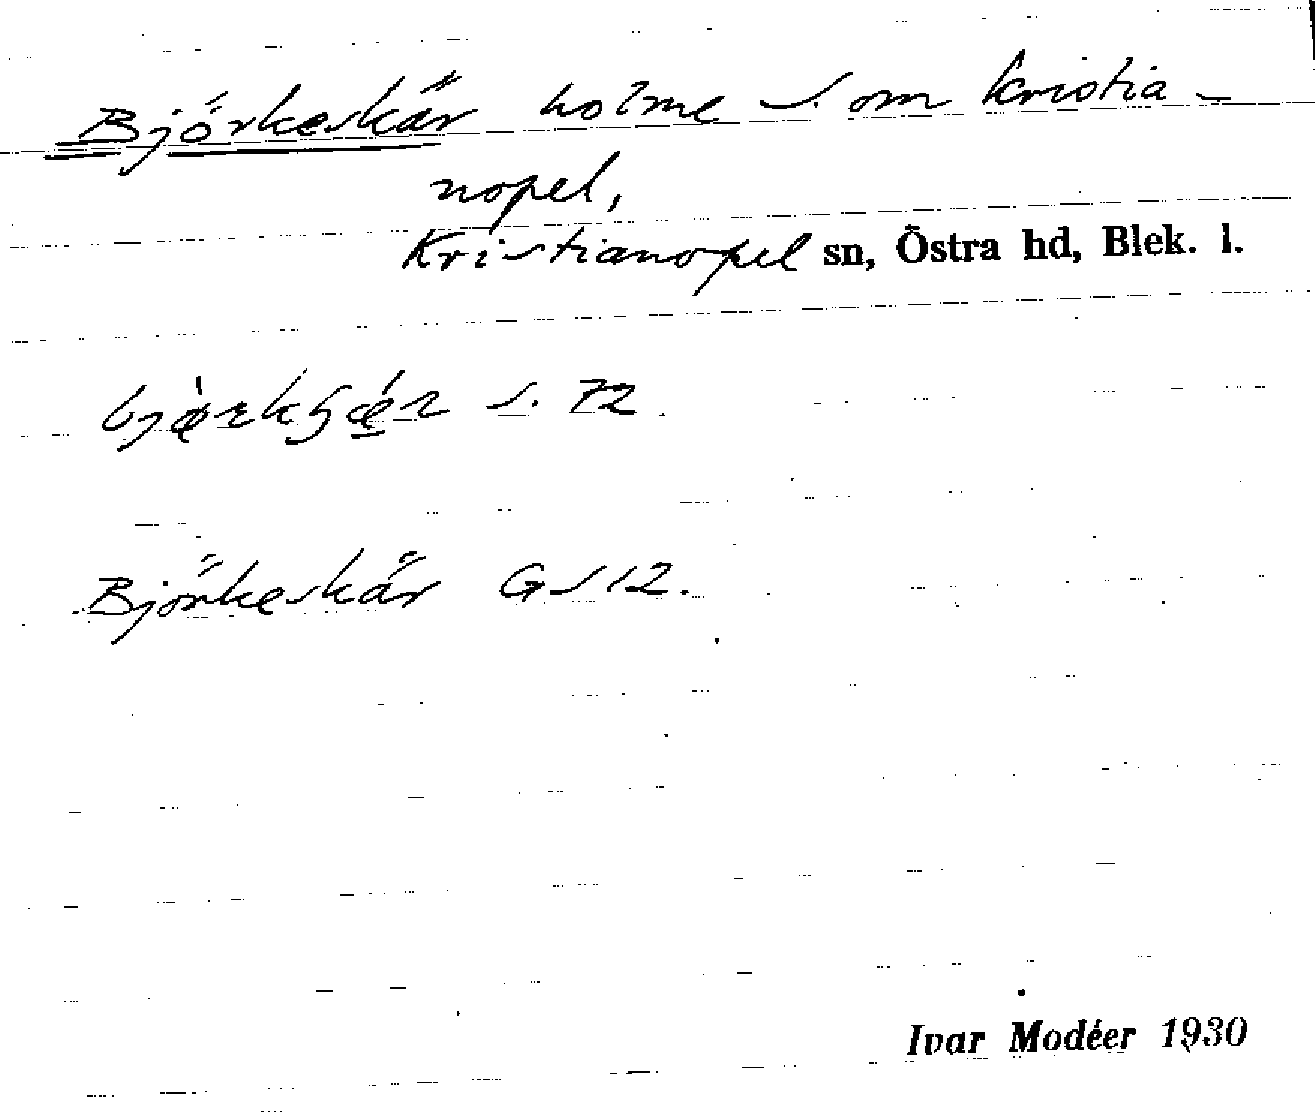 Björkeskär holme s. om Kristia-
nopel,
Kristianopel sn, Östra hd, Blek. l.
s. 72
Björkeskär GS 12.
Ivar Modéer 1930